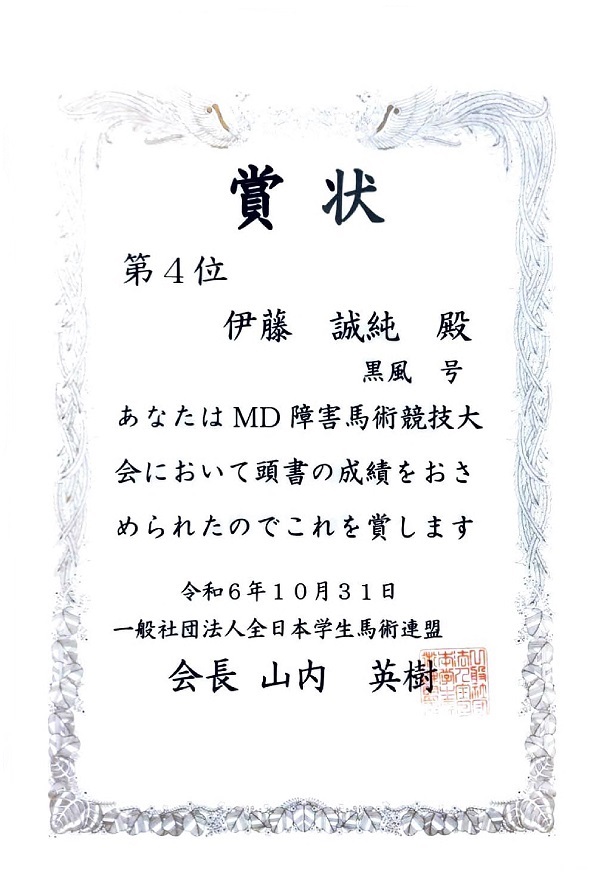 賞状
第４位
伊藤　誠純　殿
黒風　号
あなたはMD障害馬術競技大
会において頭書の成績をおさ
められたのでこれを賞します
令和６年１０月３１日
一般社団法人全日本学生馬術連盟
会長 山内　英樹